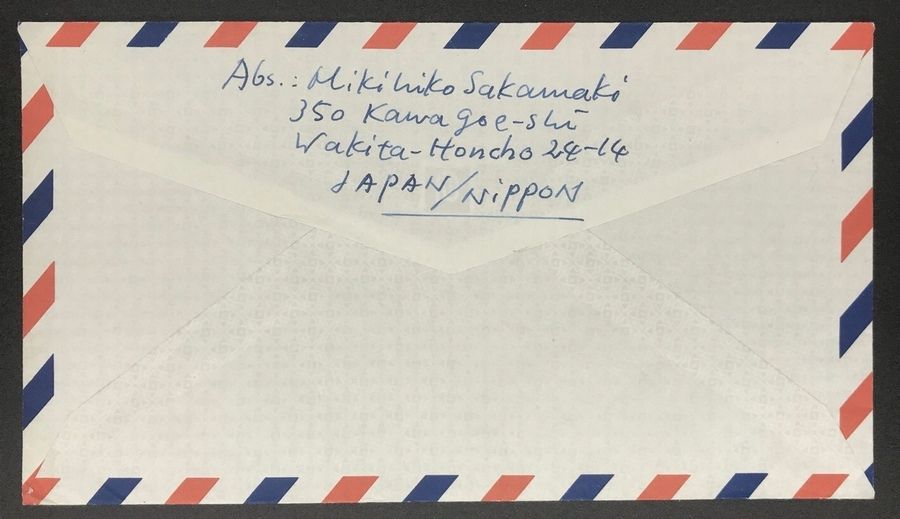 Abs.: Mikihiko Sakamaki
350 Kawagoe-shi
Wakita-Honcho 24-14
JAPAN/NIPPON